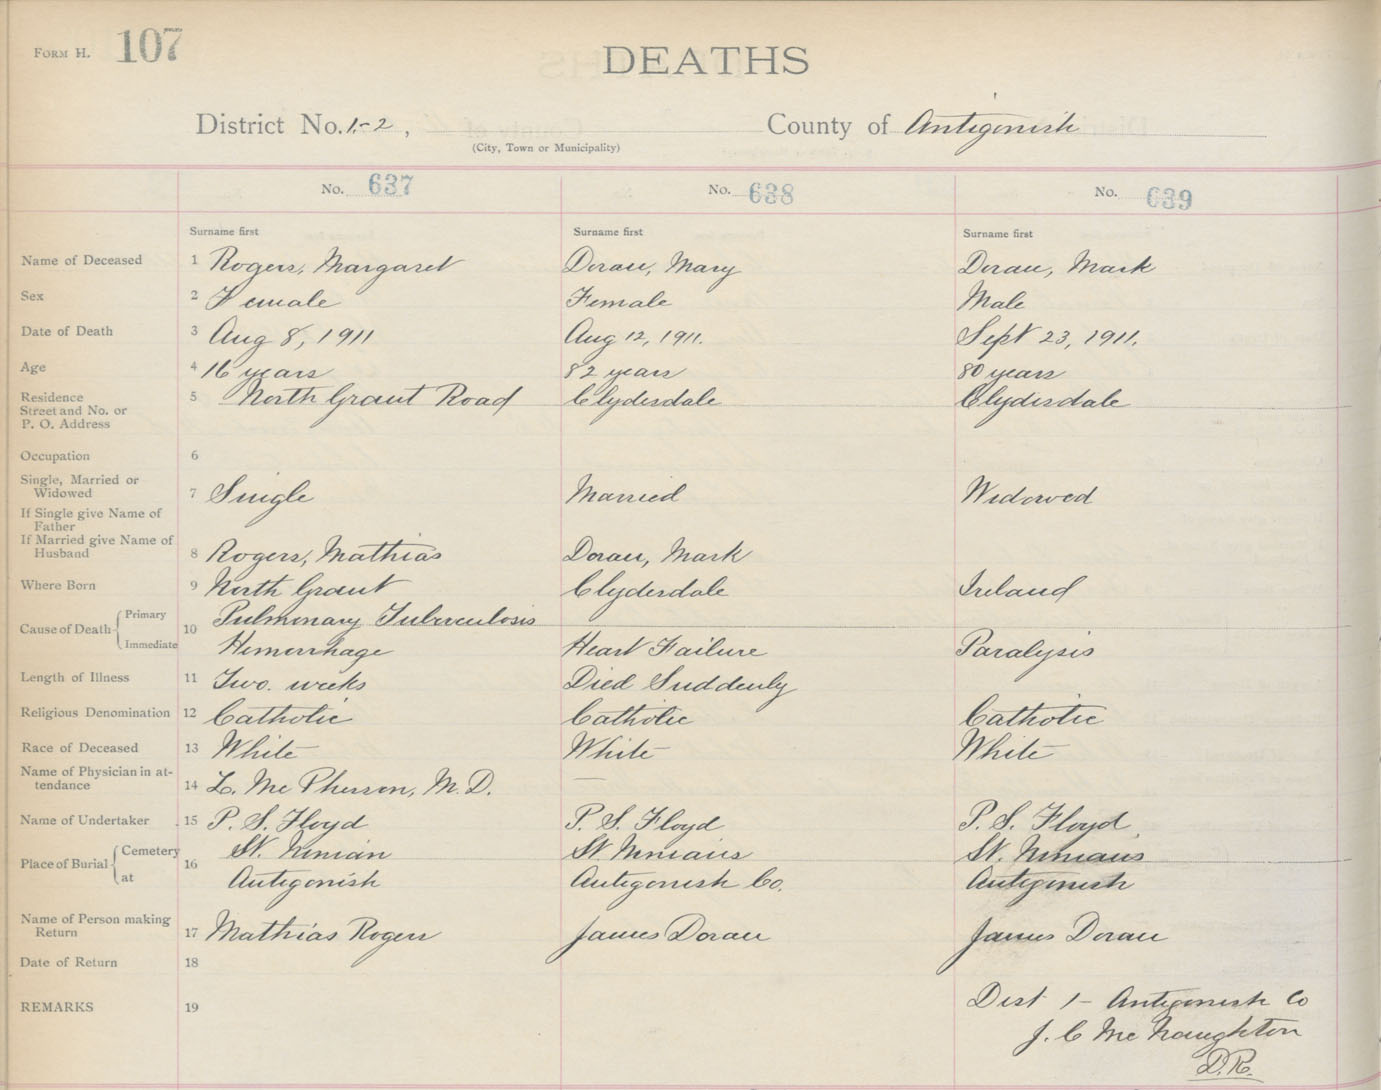 FORM H. 107
DEATHS
District No. 1-2, County of Antigonish
(City, Town or Municipality)
No. 637 No. 638 No. 639
Surname first Surname first Surname first
Name of Deceased 1 Rogers, Margaret Doran, Mary Doran, Mark
Sex 2 Female Female Male
Date of Death 3 Aug 8, 1911 Aug 12, 1911. Sept 23, 1911.
Age 4 16 years 82 years 80 years
Residence 5 North Grant Road Clydesdale Clydesdale
Street and No. or
P. O. Address
Occupation 6
Single, Married or
Widowed 7 Single Married Widowed
If Single give Name of
Father
If Married give Name of
Husband 8 Rogers, Mathias Doran, Mark
Where Born 9 North Grant Clydesdale Ireland
Cause of Death Primary 10 Pulmonary Tuberculosis
Immediate Hemorrhage Heart Failure Paralysis
Length of Illness 11 Two weeks Died Suddenly
Religious Denomination 12 Catholic Catholic Catholic
Race of Deceased 13 White White White
Name of Physician in at-
tendance 14 L. McPherson, M.D. —
Name of Undertaker 15 P. S. Floyd P. S. Floyd P. S. Floyd
Place of Burial Cemetery 16 St. Ninian St Ninians St. Ninians
at Antigonish Antigonish Co. Antigonish
Name of Person making
Return 17 Mathias Rogers James Doran James Doran
Date of Return 18
REMARKS 19 Dist 1 - Antigonish Co
J. C McNaughton
D.R.